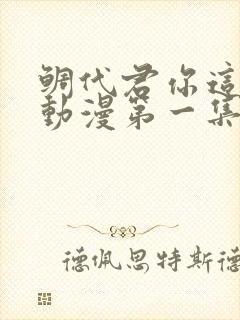 鲷代君你這
動漫第一集
德佩思特斯德